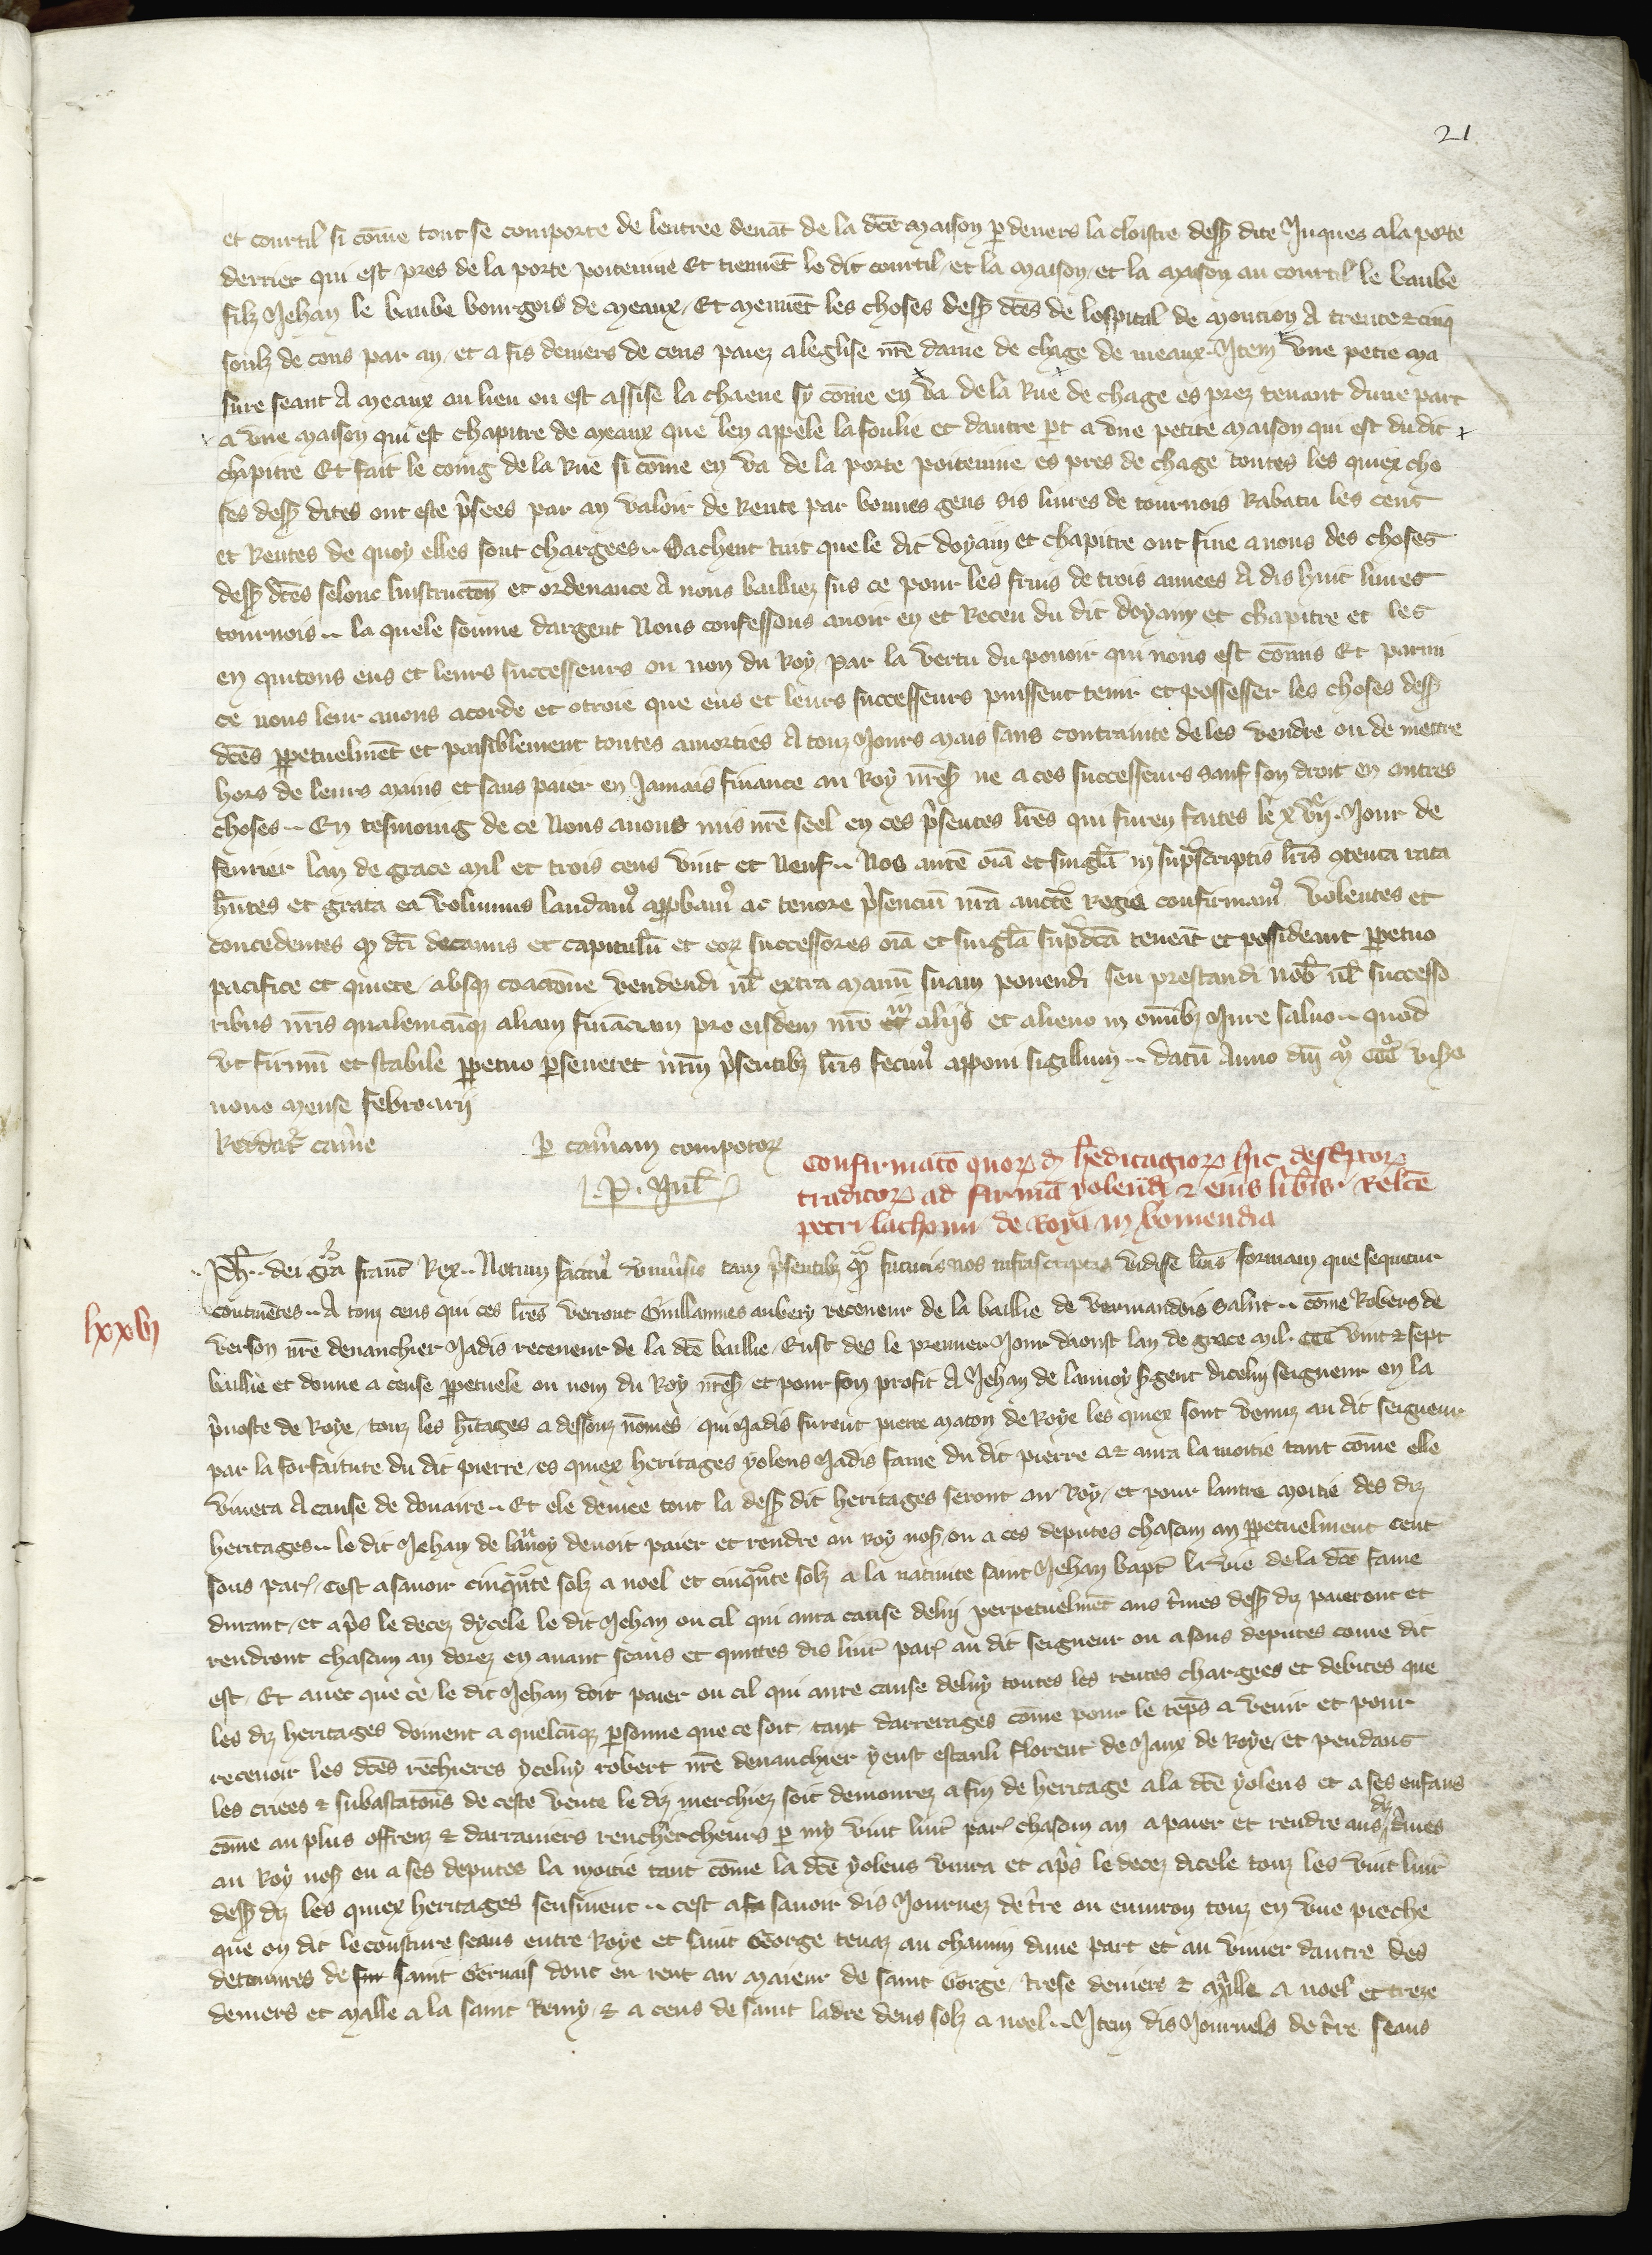 21
et courtil si cōme tout se comporte de lentree deuāt de la dc̄e maison p deuers la cloistre dess9 dite Juques a la porte
derrier qui est pres de la porte poiteuine Et tiennēt le dit courtil et la maison et la maison au courtil le baube
filz Jehan le baube bourgois de meaux Et meuuēt les choses dess9 dc̄es de lospital de moution A trente ⁊ cinq
soulz de cens par an et a sis deniers de cens paiez a leglise nr̄e dame de chage de meaux Item vne petie ma
sure seant A meaux au lieu ou est assise la chaene sy cōme en va de la Rue de chage es prez tenant dune part
a vne maison qui est chapitre de meaux que len appele la foulie et dautre p̄t a vne petite maison qui est du dit
chapitre Et fait le coing de la Rue si cōme en va de la porte poiteuine es pres de chage toutes les quiex cho
ses dess9 dites ont este p̄sees par an valoir de Rente par bonnes gens sis liures de tournois Rabatu les cens
et Rentes de quoy elles sont chargees .. Sachent tuit que le dit doyain et chapitre ont fine a nous des choses
dess9 dc̄es selonc linstructōn et ordenance A nous bailliez sus ce pour les fruis de trois annees A dis huit liures
tournois .. la quele somme dargent Nous confessons auoir eu et Receu du dit doyany et chapitre et les
en quitons eus et leurs successeurs ou non du Roy par la vertu du pouoir qui nous est cōmis Et parmi
ce nous leur auons acorde et otroie que eus et leurs successeurs puissent tenir et possesser les choses dess9
dc̄es ppetuelmēt et paisiblement toutes amorties A touz Jours mais sans contrainte de les vendre ou de mettre
hors de leurs mains et sans paier en Jamais finance au Roy nr̄es9 ne a ces successeurs sauf son droit en autres
choses .. En tesmoing de ce Nous auons mis nr̄e seel en ces p̄sentes lr̄es qui furen faites le xvije Jour de
feurier lan de grace mil et trois cens vint et Neuf .. Nos autē oīa et singl̄a in sup̄scriptis lr̄is 9tenta rata
hn̄tes et grata ea volumus laudam9 app̄bam9 ac tenore p̄senciū nr̄a auctē Regia confirmam9 volentes et
concedentes q̄ dc̄i decanus et capitul̄m et eor̄ successores oīa et singl̄a sup̄dc̄a teneāt et possideant ppetuo
pacifice et quiete absq3 coactōne vendendi ul̄ extra manū suam ponendi seu prestandi nob̄ ul̄ successo
ribus nr̄is qualemcūq3 aliam fināciam pro eisdem nr̄o in alijs et alieno in omībz Jure saluo .. quod
vt firmū et stabile ppetuo p̄seueret nr̄m p̄sentibz lr̄is fecim9 apponi sigillum .. datū Anno dn̄i mo ccco vice
nono mense februarij
Reddatr cam̄e
P cam̄am compotor̄
J. P. Jul̄
Confirmatō quor̄d̄ h̄editagior̄ hic desc̄ptor̄
traditor̄ ad firmā yolendi ⁊ eius lib̄is Relc̄e
petri lachonii de Roya in viromendia
lxxvj
Ph̄ .. dei gr̄a franc̄ Rex .. Notum facim9 vniūsis tam p̄sentibz q̄ futuris nos infrascriptas vidisse lr̄as formam que sequitur
continētes .. A touz ceus qui ces lr̄es verront Guillaumes aubery receueur de la baillie de vermandois salut .. cōme Robers de
verson nr̄e deuanchier Jadis receueur de la dc̄e baillie Eust des le premier Jour daoust lan de grace mil. ccc vint ⁊ sept
baillie et donne a cense ppetuele ou nom du Roy nr̄es9 et pour son profit A Jehan de lannoy s̄gent dicelui seigneur en la
p̄uoste de Roye touz les h̄itages a dessouz nōmes qui Jadis furent pierre maton de Roye les quiex sont venuz au dit seigneur
par la forfaiture du dit pierre es quiex heritages yolens Jadis fame du dit pierre a ⁊ aura la moitie tant cōme elle
viuera A cause de douaire .. Et ele deuiee tout la dess9 dit heritages seront au Roy et pour lautre moitie des diz
heritages .. le dit Jehan de lannoy deuoit paier et rendre au roy nos9 ou a ces deputes chascun an ppetuelment cent
sous par̄ cest asauoir cinquāte solz a noel et cinquāte solz a la natiuite saint Jehan bapt̄ la vie de la dc̄e fame
durant et ap̄s le decez dycele le dit Jehan ou cil qui aura cause delui perpetuelmēt aus t̄mes dess9 diz paieront et
rendront chascun an dorez en auant frans et quittes dis liur̄ par̄ au dit seigneur ou a sous deputes come dit
est Et auec que ce le dit Jehan doit paier ou cil qui aure cause deluy toutes les rentes chargees et debites que
les diz heritages doiuent a quelcūq3 p̄sonne que ce soit tant darrerages cōme pour le tēps a venir et pour
receuoir les dc̄es rēchieres yceluy robert nr̄e deuanchier y eust estauli florent de Jaux de Roye et pendans
les criees ⁊ subastatōns de ceste vente le diz merchiez soit demourez a fin de heritage a la dc̄e yolens et a ses enfans
cōme au plus offrenz ⁊ darrainiers renchercheurs p my vint liur̄ par̄ chascun an a paier et rendre aus diz t̄mes
au Roy nos9 ou a ses deputes la moitie tant cōme la dc̄e yolens viura et ap̄s le decez dicele touz les vint liur̄
dess9 diz les quiex heritages sensiuent .. cest a sauoir dis Journez de t̄re ou enuiron touz en vne pieche
que on dit le cousture seans entre Roye et saint George tenaz au chamin dune part et au viuier dautre des
detenures de saint Geruais dont en rent au maieur de saint George trese deniers ⁊ mālle a noel et treze
deniers et malle a la saint Remy ⁊ a ceus de saint ladre deus solz a noel .. Item dis Journels de t̄re seans